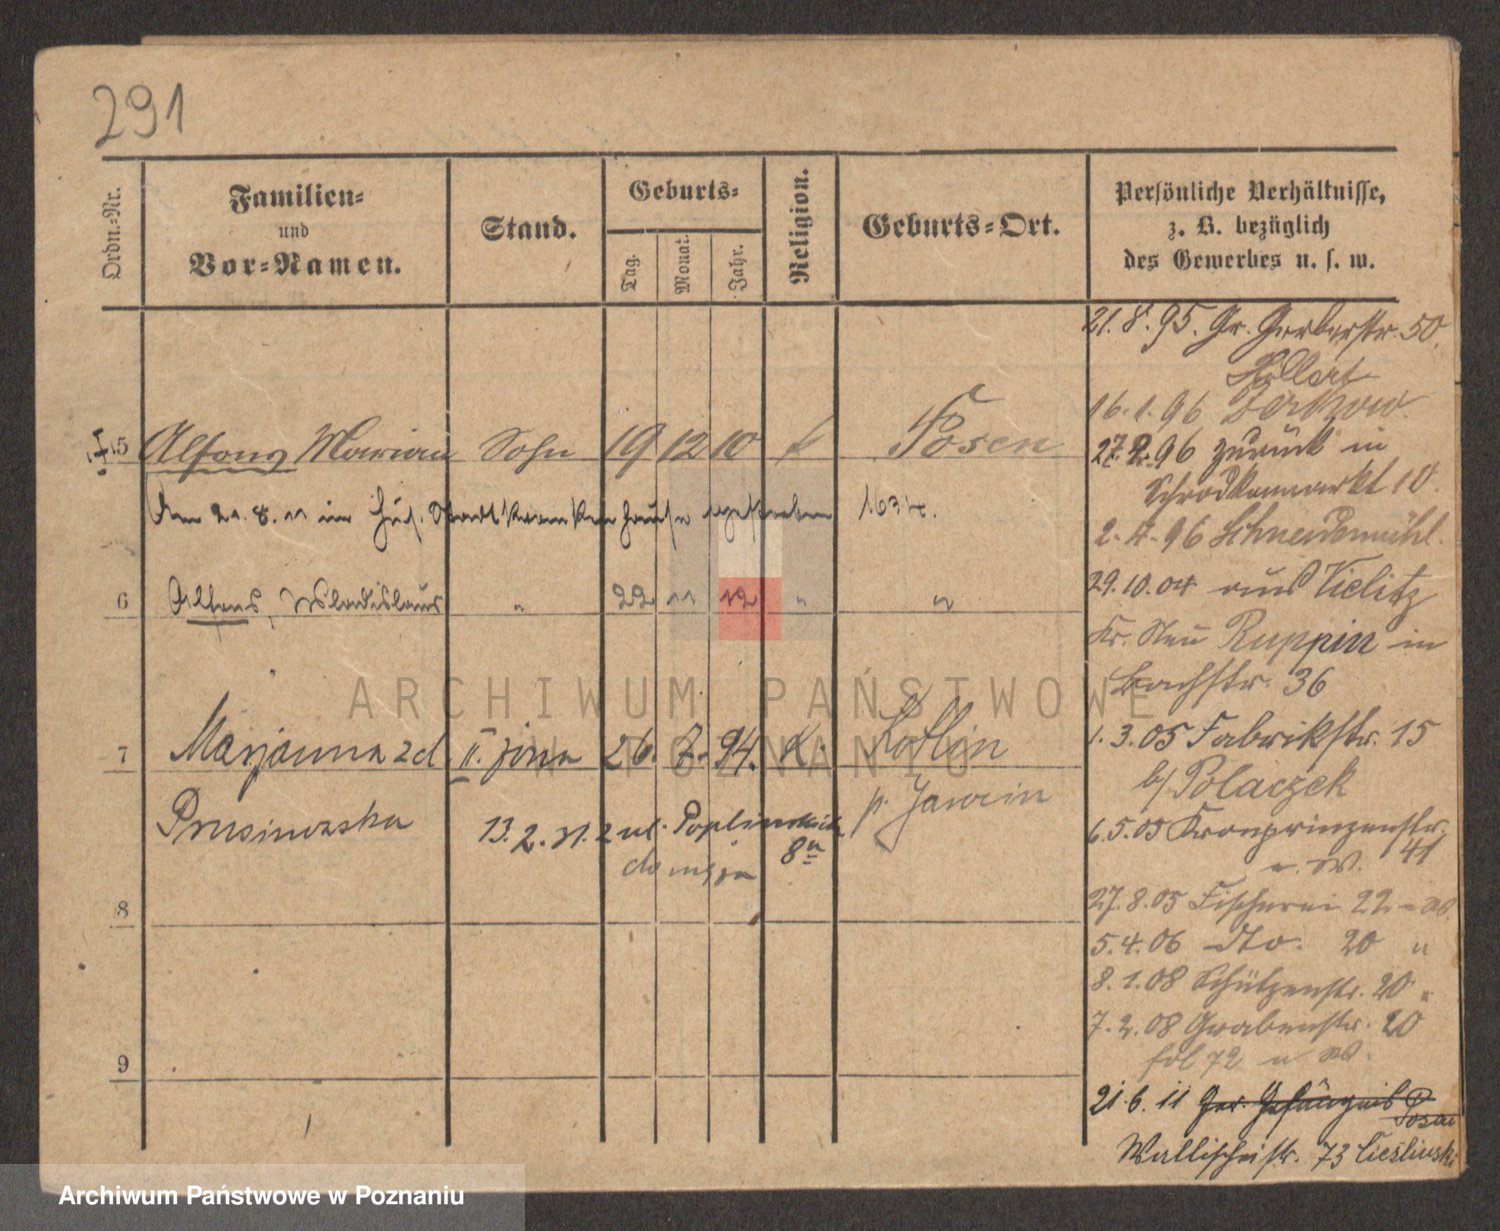 291
Ordn.-Nr.
Familien-
und
Vor-Namen.
Stand.
Geburts-
Tag.
Monat.
Jahr.
Religion.
Geburts-Ort.
Persönliche Verhältnisse,
z. B. bezüglich
des Gewerbes u. s. w.
5 Alfons Marian Sohn 19 12 10 Posen
Am 21. 8. 11 im Stadtkrankenhause gestorben 1634.
6 Alfons, Wladislaus " 22 11 12 " "
7 Marjanna zd II. żona 26. 7. 94. k. Kotlin
Prusinowska p. Jarocin
13. 2. 31. z ul. Poplinskich
8a
8
9
21. 8. 95. Gr. Gerberstr. 50.
16. 1. 96 Zerkow.
27. 2. 96 zurück in
Schrodkamarkt 10.
2. 4. 96 Schneidemühl.
29. 10. 04 aus Vielitz
Kr. Neu Ruppin in
Bachstr. 36
1. 3. 05 Fabrikstr. 15
b/ Polaczek
6. 5. 05 Kronprinzenstr.
41
27. 8. 05 Fischerei 22
5. 4. 06 dto. 20 "
8. 1. 08 Schützenstr. 20 "
7. 2. 08 Grabenstr. 20
fol 72
21. 6. 11 Ger. Gefängnis Posen
Wallischeistr. 73 Cieslinski
ARCHIWUM PAŃSTWOWE
W POZNANIU
Archiwum Państwowe w Poznaniu